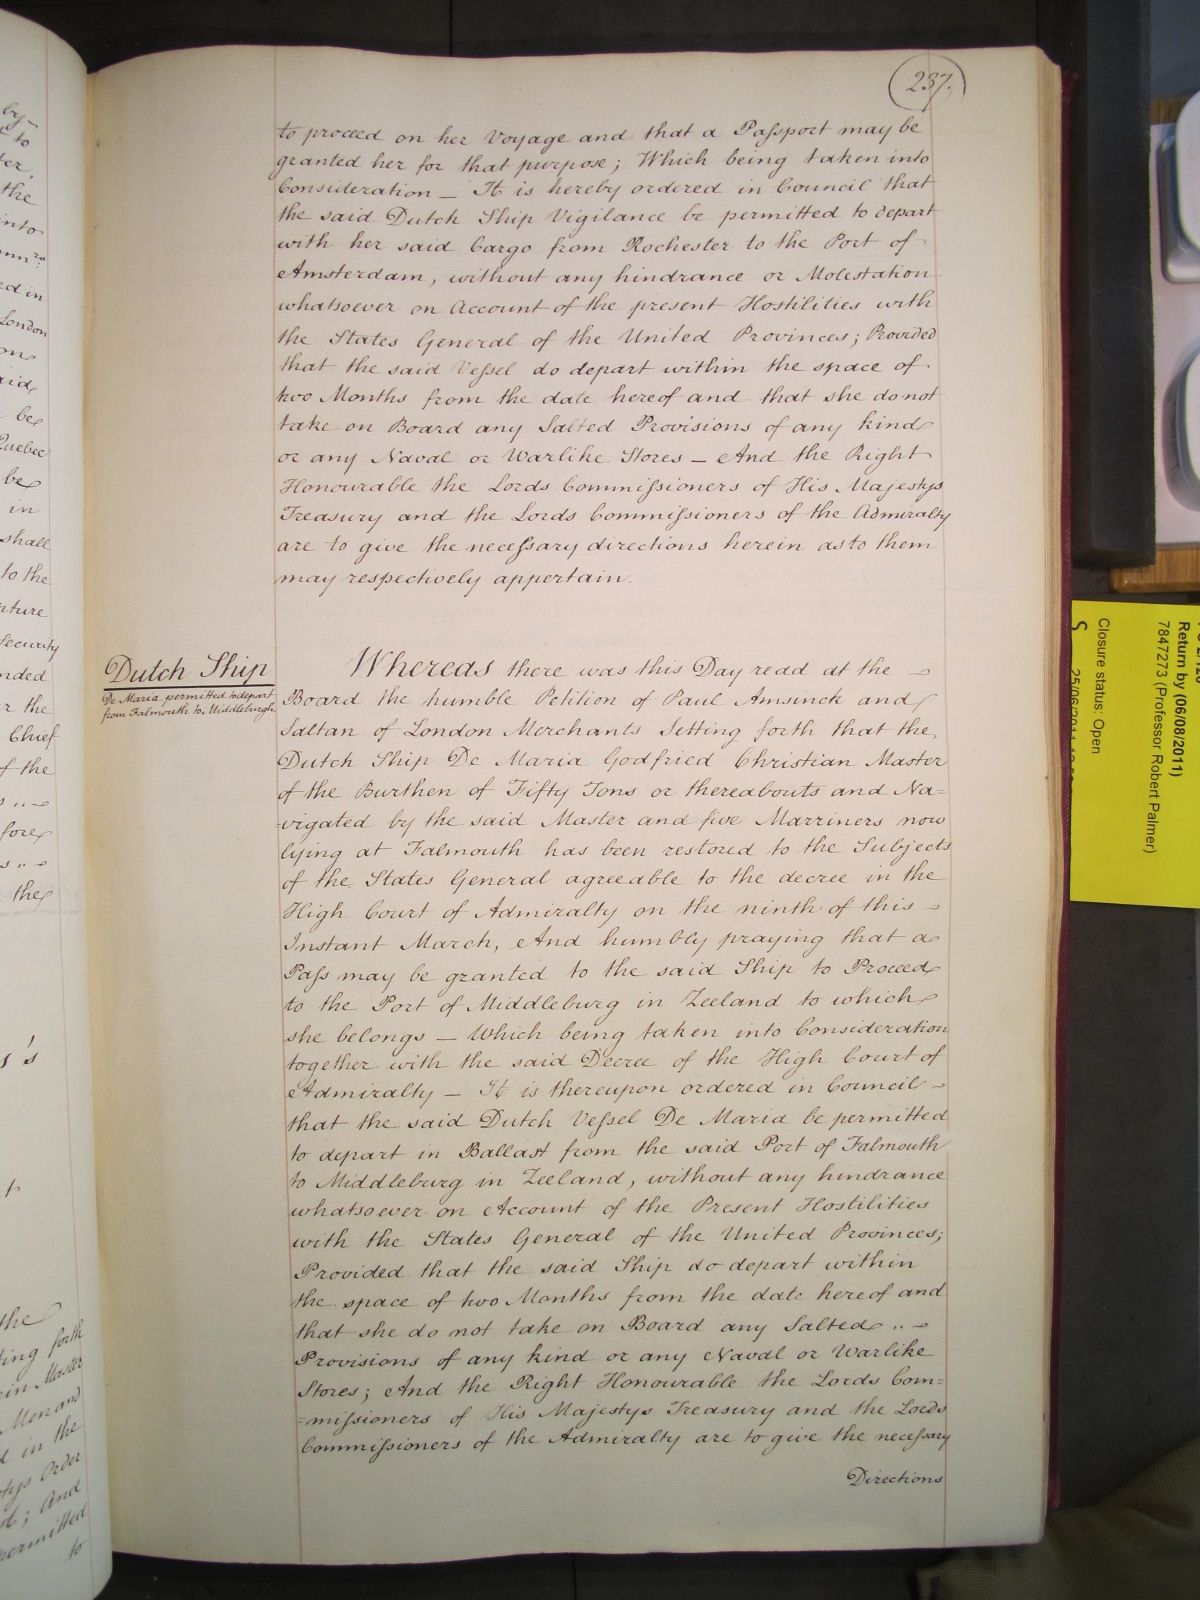 237.
to proceed on her Voyage and that a Paſsport may be
granted her for that purpose; Which being taken into
Consideration — It is hereby ordered in Council that
the said Dutch Ship Vigilance be permitted to depart
with her said Cargo from Rochester to the Port of
Amsterdam, without any hindrance or Molestation
whatsoever on Account of the present Hostilities with
the States General of the United Provinces; Provided
that the said Veſsel do depart within the space of
two Months from the date hereof and that she do not
take on Board any Salted Provisions of any kind
or any Naval or Warlike Stores — And the Right
Honourable the Lords Commiſsioners of His Majestys
Treasury and the Lords Commiſsioners of the Admiralty
are to give the neceſsary directions herein as to them
may respectively appertain.
Dutch Ship
De Maria permitted to depart
from Falmouth to Middleburgh
Whereas there was this Day read at the
Board the humble Petition of Paul Amsinck and
Saltan of London Merchants Setting forth that the
Dutch Ship De Maria Godfried Christian Master
of the Burthen of Fifty Tons or thereabouts and Na=
=vigated by the said Master and five Marriners now
lying at Falmouth has been restored to the Subjects
of the States General agreeable to the decree in the
High Court of Admiralty on the ninth of this
Instant March, And humbly praying that a
Paſs may be granted to the said Ship to Proceed
to the Port of Middleburg in Zeeland to which
she belongs — Which being taken into Consideration
together with the said Decree of the High Court of
Admiralty — It is thereupon ordered in Council
that the said Dutch Veſsel De Maria be permitted
to depart in Ballast from the said Port of Falmouth
to Middleburg in Zeeland, without any hindrance
whatsoever on Account of the Present Hostilities
with the States General of the United Provinces;
Provided that the said Ship do depart within
the space of two Months from the date hereof and
that she do not take on Board any Salted
Provisions of any kind or any Naval or Warlike
Stores; And the Right Honourable the Lords Com=
=miſsioners of His Majestys Treasury and the Lords
Commiſsioners of the Admiralty are to give the neceſsary
Directions
Return by (06/08/2011)
7847273 (Professor Robert Palmer)
Closure status: Open
S